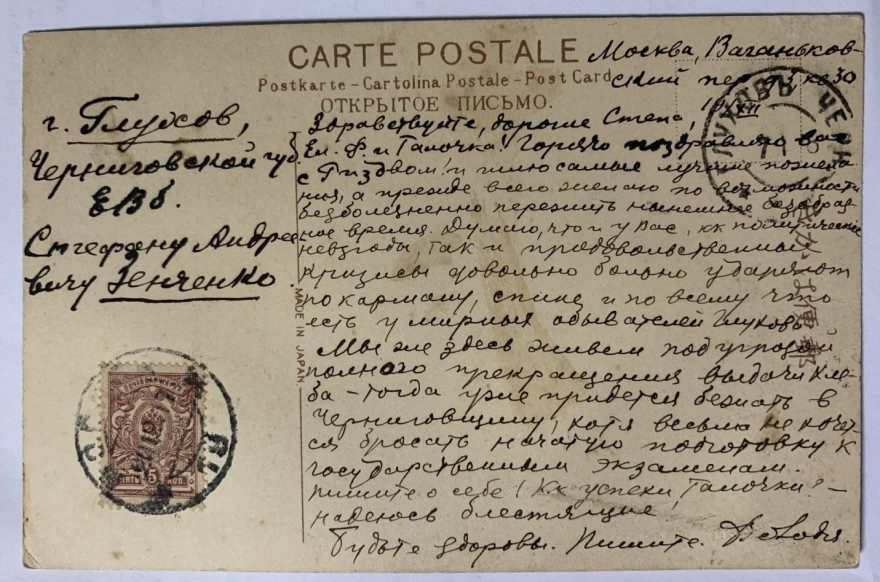 CARTE POSTALE
Postkarte - Cartolina Postale - Post Card
ОТКРЫТОЕ ПИСЬМО.
Москва, Ваганьков-
ский пер кв 30
г. Глухов,
Черниговской губ.
ЕВб.
Стефану Андрее
вичу Зенченко
MADE IN JAPAN
Здравствуйте, дорогие Степа,
Ел. Ф. и Галочка! Горячо поздравляю вас
с Р-ждвом! и шлю самые лучшие пожела-
ния, а прежде всего желаю по возможности
безболезненно пережить нынешнее безобраз-
ное время. Думаю, что и у Вас, кк политические
невзгоды, так и продовольственные
кризисы довольно больно ударяют
по карману, спине и по всему что
есть у мирных обывателей Глухова
Мы же здесь живем под угрозой
полного прекращения выдачи хле-
ба - тогда уже придется бежать в
Черниговщину, хотя весьма не хочет
ся бросать начатую подготовку к
государственным экзаменам.
Пишите о себе! Кк успехи Галочки? -
надеюсь блестящие
Будьте здоровы. Пишите.
ГЛУХОВЪ ЧЕРН
ПЯТЬ 5 КОП.